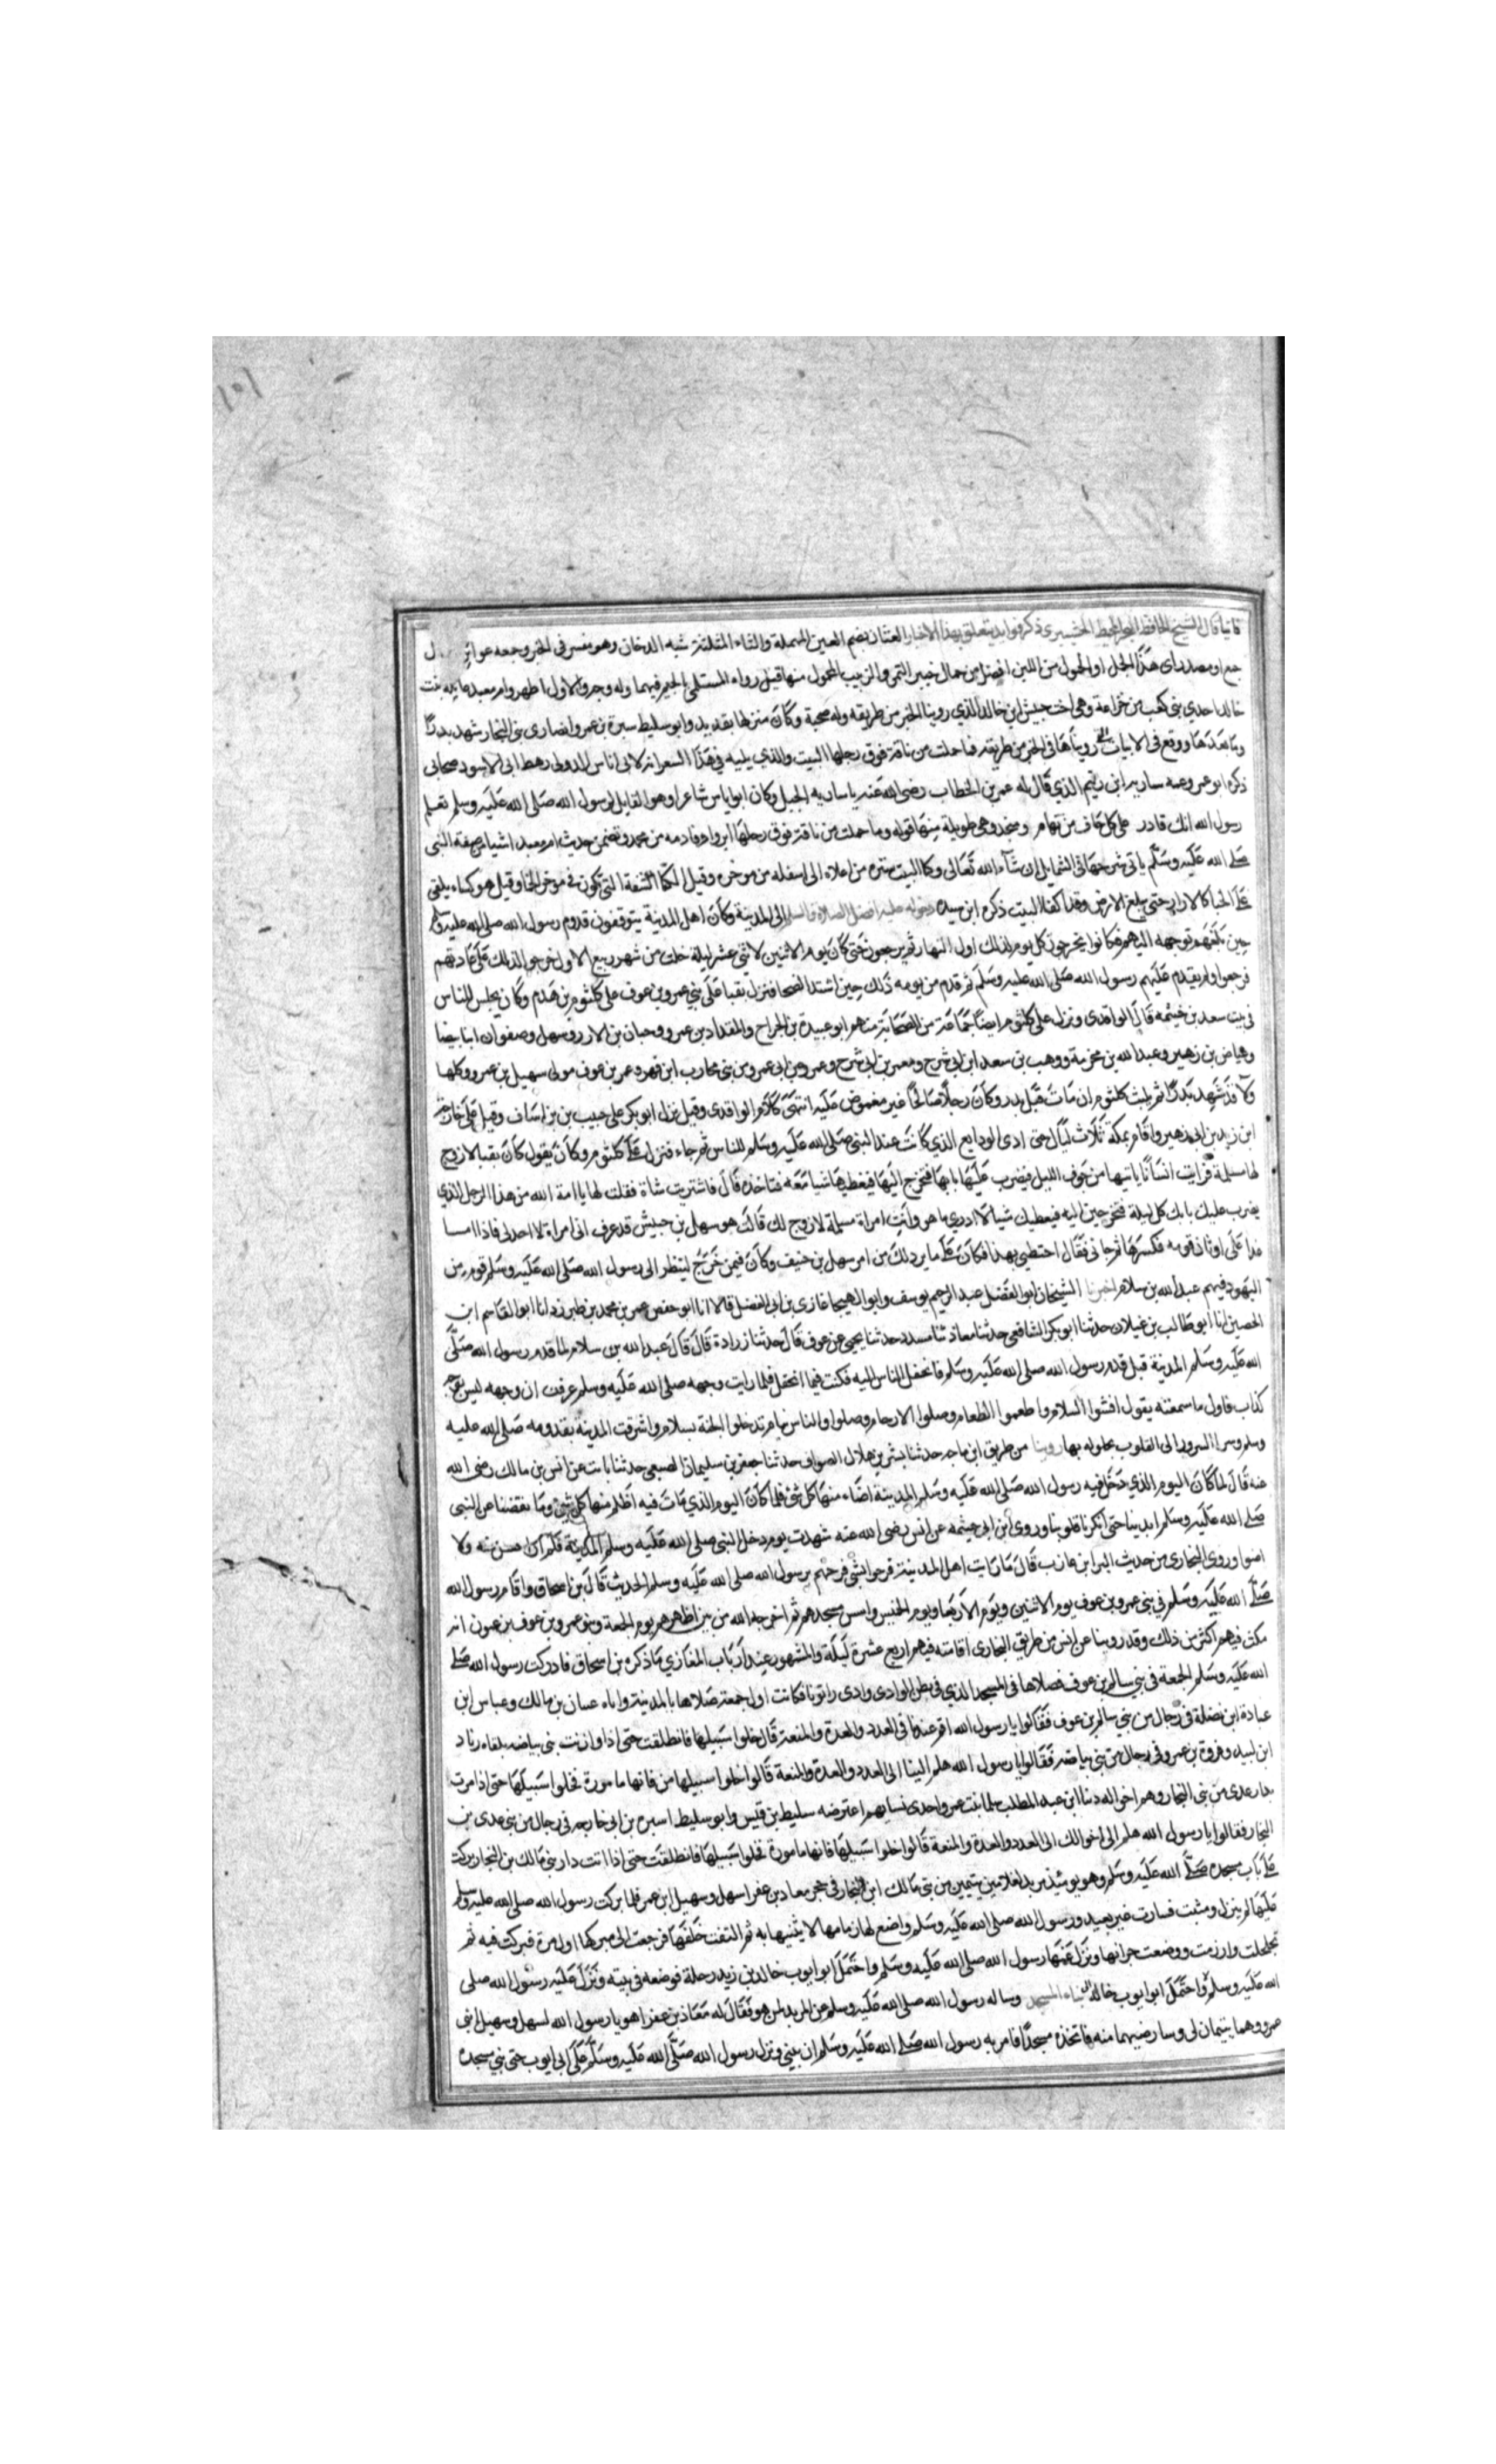 جمع او مصدر اى هذا الحمل او المحمول من اللبن افضل من حمال خيبر التمر والزبيب المحمول منها قيل رواه المستملى بالجيم فيهما وله وجه والاول اظهر وام معبد عاتكه بنت
خالد احدى بنى كعب من خزاعة وهى اخت حبيش ابن خالد الذي روينا الخبر من طريقه وله صحبة وكان منزلها بقديد وابو سليط سبرة بن عمرو انصارى بنى النجار شهد بدرا
وما بعدها ووقع فى الابيات التى رويناها فى الخبر من طريقه فما حملت من ناقة فوق رحلها البيت والذي يليه في هذا الشعر انه لابى اناس الدولى رهط ابى الاسود صحابى
ذكره ابو عمر وعمه ساريه ابن زنيم الذي قال له عمر بن الخطاب رضى الله عنه يا ساريه الجبل وكان ابو اياس شاعرا وهو القايل لرسول الله صلى الله عليه وسلم تعلم
رسول الله انك قادر على كل حاف من تهام ومنجد وهى طويلة منها قوله وما حملت من ناقة فوق رحلها ابر واوفا ذمه من محمد وتضمن حديث ام معبد اشيا من صفة النبى
صلى الله عليه وسلم ياتى شرحها فى الشمايل ان شآء الله تعالى وكفا البيت ستره من اعلاه الى اسفله من موخره وقيل الكفا الشقة التى تكون فى موخر الخبا وقيل هو كساء يلقى
على الخبا كالازار حتى يبلغ الارض وقد اكفا البيت ذكره ابن سيده دخوله عليه افضل الصلاة والسلم الى المدينة وكان اهل المدينة يتوقفون قدوم رسول الله صلى الله عليه وسلم
حين بلغهم توجهه اليهم فكانوا يخرجون كل يوم لذلك اول النهار ثم يرجعون حتى كان يوم الاثنين لاثنى عشر ليلة خلت من شهر ربيع الاول خرجوا لذلك على عادتهم
فرجعوا ولم يقدم عليهم رسول الله صلى الله عليه وسلم ثم قدم من يومه ذلك حين اشتد الضحا فنزل بقبا على بنى عمرو بن عوف على كلثوم بن هدم وكان يجلس للناس
فى بيت سعد بن خيثمه قال الواقدى ونزل على كلثوم ايضا جماعة من الصحابة منهم ابو عبيدة بن الجراح والمقداد بن عمرو وحبان بن الارز وسهل وصفوان ابنا بيضا
وعياض بن زهير وعبد الله بن مخرمة ووهب بن سعد ابن ابى شرح ومعمر بن ابى شرح وعمرو بن ابى عمرو من بنى محارب ابن فهره وعمر بن عوف مولى سهيل بن عمرو وكلها
ولا قد شهد بدرا ثم لم يلبث كلثوم ان مات قبل بدر وكان رجلا صالحا غير مغموض عليه انتهى كلام الواقدى وقيل نزل ابو بكر على حبيب بن اساف وقيل على خارجة
ابن زيد بن ابى زهير واقام بمكة ثلاث ليال حتى ادى الودايع الذي كانت عند النبى صلى الله عليه وسلم للناس ثم جاء فنزل على كلثوم وكان يقول كان بقبا لا زوج
لها مسلمة فرايت انسانا ياتيها من جوف الليل فيضرب عليها بابها فتخرج اليها فيعطيها شيا معه فتاخذه قال فاشتريت شاة فقلت لها يا امة الله من هذا الرجل الذي
يضرب عليك بابك كل ليلة فتخرجين اليه فيعطيك شيا لا ادري ما هو وانت امراة مسلمة لا زوج لك قالت هو سهل بن حبيش قد عرف انى امراة لا احد لى فاذا امسا
عدا على اوثان قومه فكسرها ثم جانى فقال احتطبى بهذا فكان على ما ير ذلك من امر سهل بن حنيف وكان فيمن خرج لينظر الى رسول الله صلى الله عليه وسلم قوم من
اليهود فيهم عبد الله بن سلام اخبرنا الشيخان ابو الفضل عبد الرحيم يوسف وابو الهيجا غازى بن ابى الفضل قالا انا ابو حفص عمر بن محمد بن طبرزد انا ابو القاسم ابن
الحصين انا ابو طالب بن غيلان حدثنا ابو بكر الشافعى حدثنا معاذ ثنا مسدد حدثنا يحيى عن عوف قال حدثنا زرادة قال قال عبد الله بن سلام لما قدم رسول الله صلى
الله عليه وسلم المدينة قيل قدم رسول الله صلى الله عليه وسلم فانحفل الناس اليه فكنت فيما انحفل فلما رايت وجهه صلى الله عليه وسلم عرفت ان وجهه ليس بوجه
كذاب فاول ما سمعته يقول افشوا السلام واطعموا الطعام وصلوا الارحام وصلوا والناس نيام تدخلوا الجنة بسلام واشرقت المدينة بقدومه صلى الله عليه
وسلم وسرا السرور الى القلوب بحلوله بها روينا من طريق ابن ماجه حدثنا بشر بن هلال الصواف حدثنا جعفر بن سليمان الضبعى حدثنا ثابت عن انس بن مالك رضى الله
عنه قال لما كان اليوم الذي دخل فيه رسول الله صلى الله عليه وسلم المدينة اضاء منها كل شئ فلما كان اليوم الذي مات فيه اظلم منها كل شئ وما نفضنا عن النبى
صلى الله عليه وسلم ايدينا حتى انكرنا قلوبنا وروى ابن ابى خيثمه عن انس رضى الله عنه شهدت يوم دخل النبى صلى الله عليه وسلم المدينة فلم ار احسن منه ولا
اضوا وروى البخارى من حديث البرا بن عازب قال ما رايت اهل المدينة فرحوا بشى فرحهم برسول الله صلى الله عليه وسلم الحديث قال بن اسحاق واقام رسول الله
صلى الله عليه وسلم فى بنى عمرو بن عوف يوم الاثنين ويوم الاربعا ويوم الخميس واسس مسجدهم ثم اخرجه الله من بين اظهرهم يوم الجمعة وبنو عمرو بن عوف يزعمون انه
مكث فيهم اكثر من ذلك وقد روينا عن انس من طريق البخارى اقامته فيهم اربع عشرة ليلة والمشهور عند ارباب المغازي ما ذكره بن اسحاق فادركت رسول الله صلى
الله عليه وسلم الجمعة فى بنى سالم بن عوف فصلاها فى المسجد الذي فى بطن الوادى وادى رانونا فكانت اول جمعة صلاها بالمدينة واتاه عسان بن مالك وعباس ابن
عبادة ابن نضلة فى رجال من بنى سالم بن عوف فقالوا يا رسول الله اقم عندنا فى العدد والعدة والمنعة قال خلوا سبيلها فانطلقت حتى اذا وازنت بنى بياضه تلقاه زياد
ابن لبيد وفروة بن عمرو فى رجال من بنى بياضه فقالوا يا رسول الله هلم الينا الى العدد والعدة والمنعة قالوا خلوا سبيلها من فانها مامورة فخلوا سبيلها حتى اذا مرت
بدار عدى من بنى النجار وهم اخواله دنيا ابن عبد المطلب سلما بنت عمرو احدى نسايهم اعترضه سليط بن قيس وابو سليط اسبره بن ابى خارجه فى رجال من بنى عدى بن
النجار فقالوا يا رسول الله هلم الى اخوالك الى العدد والعدة والمنعة قالوا خلوا سبيلها فانها مامورة فخلوا سبيلها فانطلقت حتى اذا اتت دار بنى مالك بن النجار بركت
على باب مسجده صلى الله عليه وسلم وهو يوميذ مربد لغلامين يتيمين من بنى مالك ابن النجار فى حجر معاذ بن عفرا سهل وسهيل ابن عمر فلما بركت رسول الله صلى الله عليه وسلم
عليها لم ينزل وثبت فسارت غير بعيد ورسول الله صلى الله عليه وسلم واضع لها زمامها لا يثنيها به ثم التفت خلفها فرجعت الى مبركها اول مرة فبركت فيه ثم
تحلحلت وارزمت ووضعت جرانها ونزل عنها رسول الله صلى الله عليه وسلم واحتمل ابو ايوب خالد بن زيد رحلة فوضعه فى بيته ونزل عليه رسول الله صلى
الله عليه وسلم واحتمل ابو ايوب خالد بناء المسجد وساله رسول الله صلى الله عليه وسلم عن المربد لمن هو فقال له معاذ بن عفرا هو يا رسول الله لسهل وسهيل ابنى
عمرو وهما يتيمان لى وسارضيهما منه فاتخذه مسجدا فامر به رسول الله صلى الله عليه وسلم ان يبنى ونزل رسول الله صلى الله عليه وسلم على ابى ايوب حتى بنى مسجده